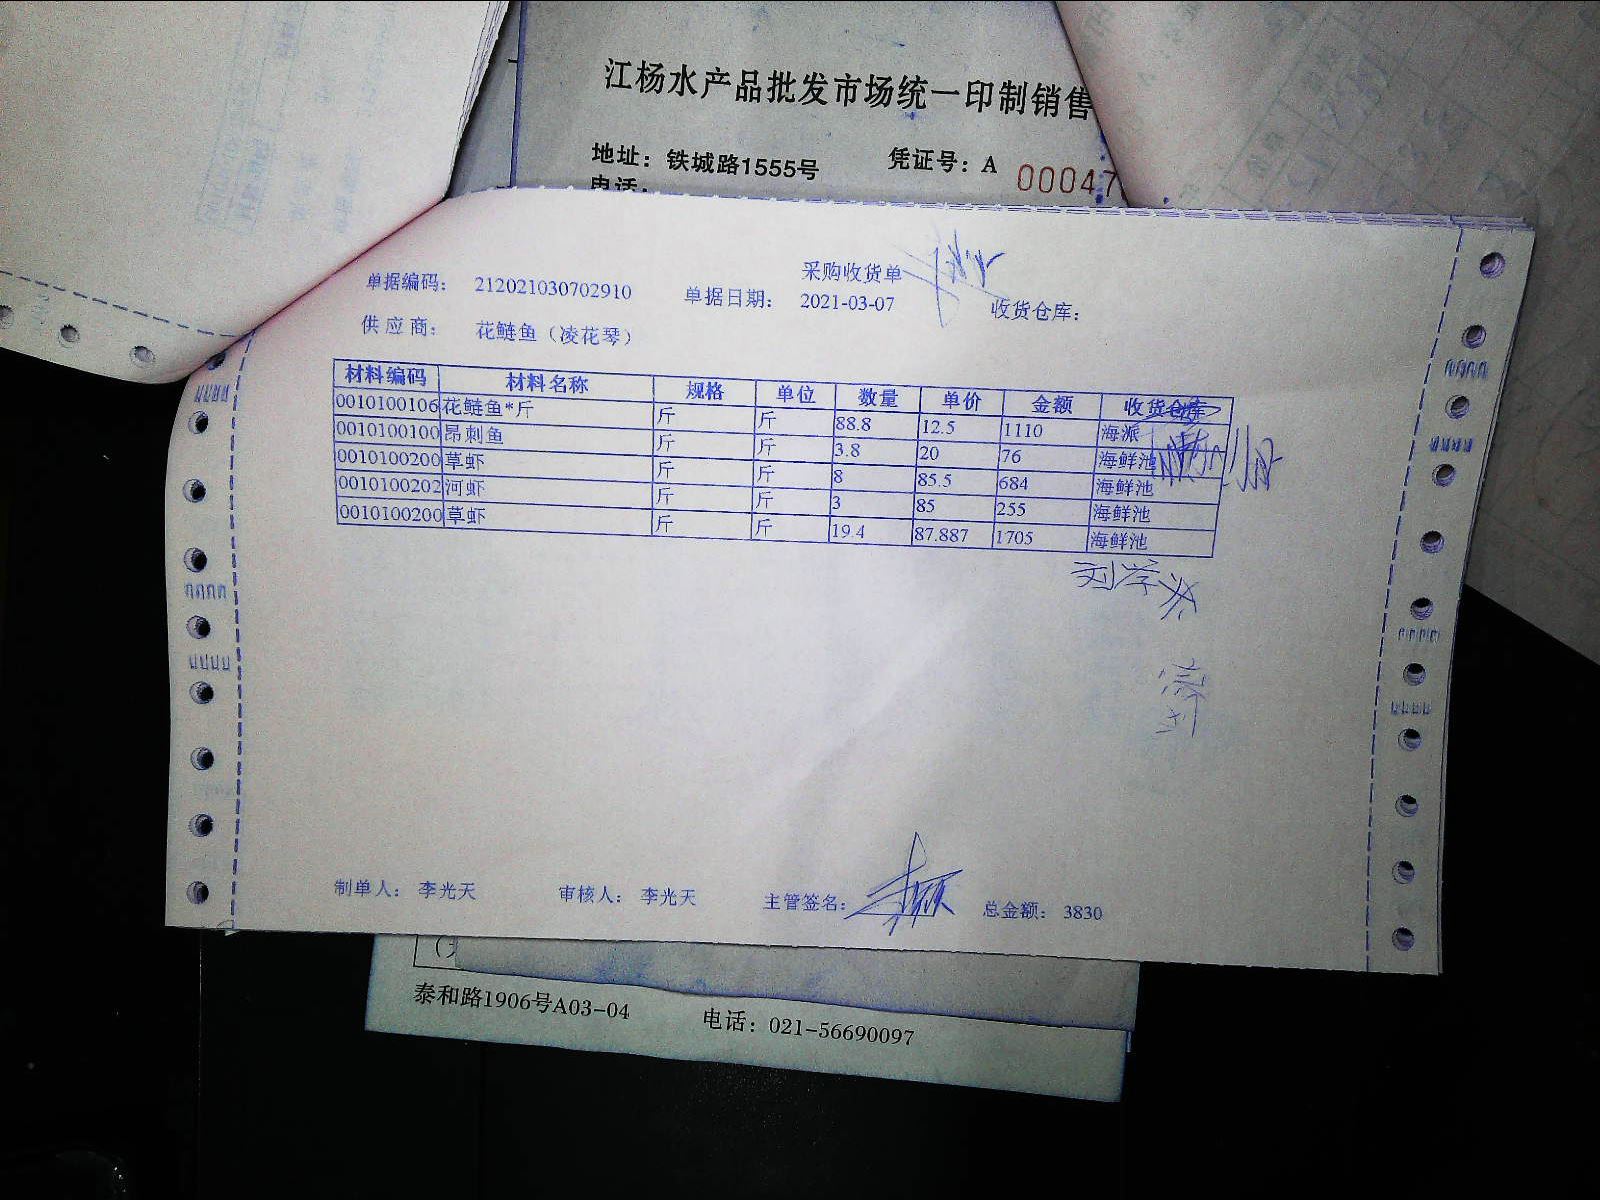 江杨水产品批发市场统一印制销售
地址：铁城路1555号 凭证号：A 00047
电话：
采购收货单
单据编码： 212021030702910 单据日期： 2021-03-07 收货仓库：
供应商： 花鲢鱼（凌花琴）
材料编码 材料名称 规格 单位 数量 单价 金额 收货仓库
0010100106 花鲢鱼*斤 斤 斤 88.8 12.5 1110 海派
0010100100 昂刺鱼 斤 斤 3.8 20 76 海鲜池
0010100200 草虾 斤 斤 8 85.5 684 海鲜池
0010100202 河虾 斤 斤 3 85 255 海鲜池
0010100200 草虾 斤 斤 19.4 87.887 1705 海鲜池
制单人： 李光天 审核人： 李光天 主管签名： 总金额： 3830
泰和路1906号A03-04 电话：021-56690097